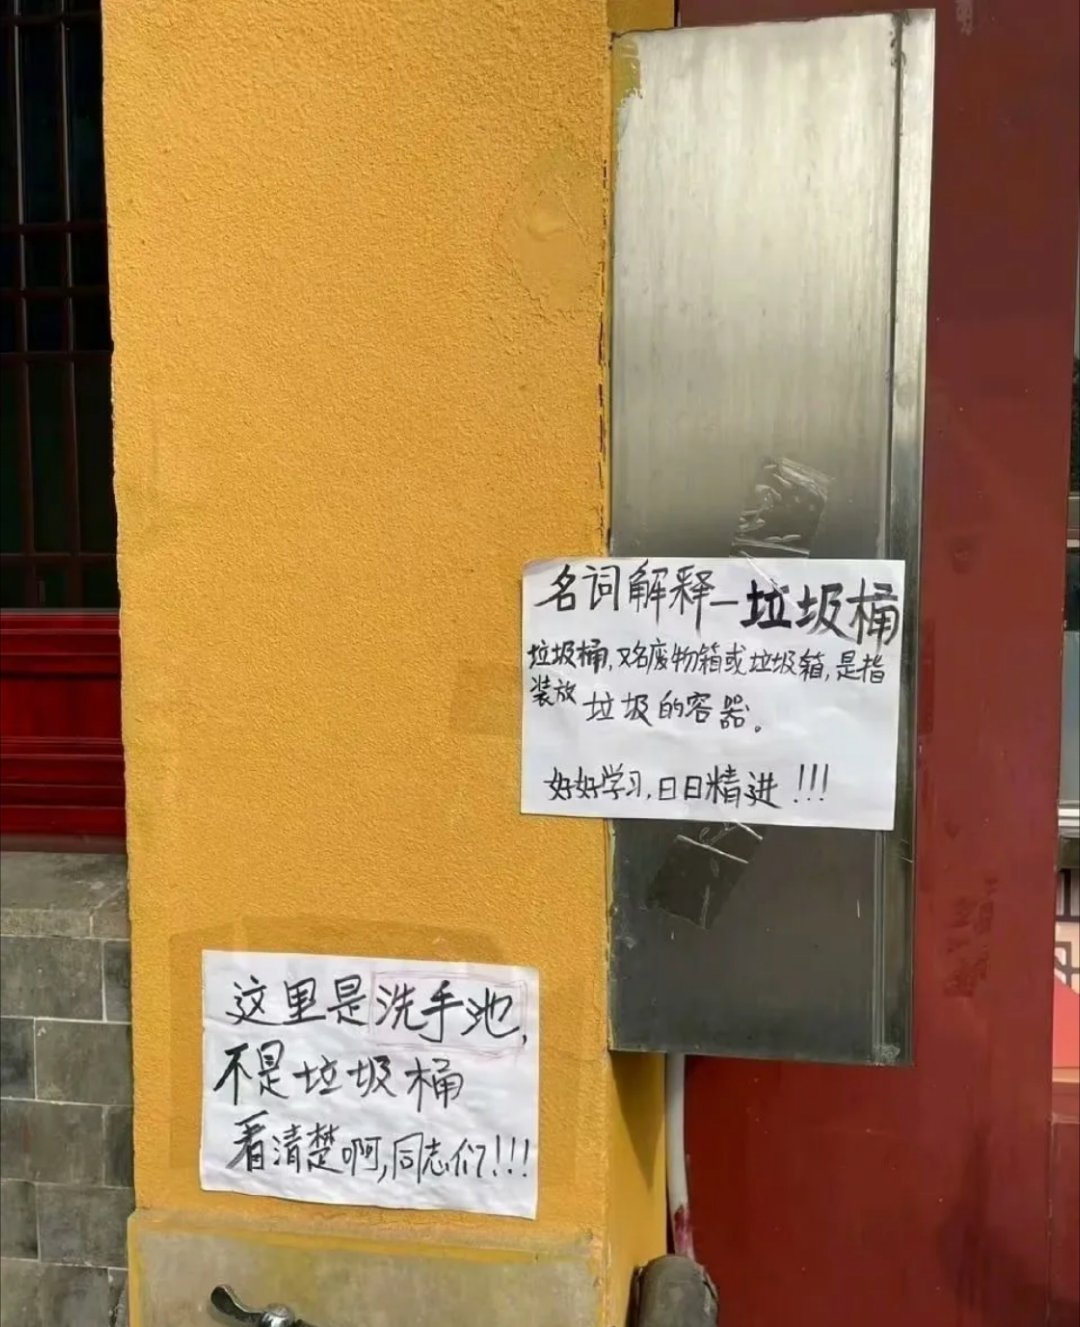 名词解释—垃圾桶
垃圾桶,又名废物箱或垃圾箱,是指
装放垃圾的容器。
好好学习,日日精进!!!
这里是洗手池,
不是垃圾桶
看清楚啊,同志们!!!